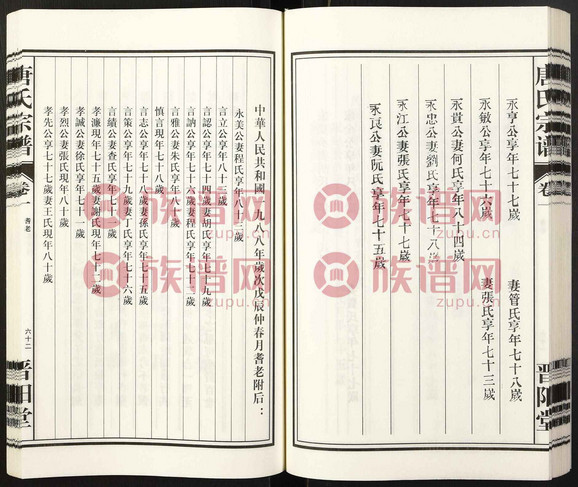 唐氏宗谱
卷一
晋阳堂
永亨公享年七十七歲　妻管氏享年七十八歲
永敏公享年七十六歲　妻張氏享年七十三歲
永貴公妻何氏享年八十四歲
永忠公妻劉氏享年七十八歲
永江公妻張氏享年七十七歲
永良公妻阮氏享年七十五歲
中華人民共和國一九八八年歲次戊辰仲春月耆老附后：
永美公妻程氏享年八十三歲
言立公享年八十歲
言認公享年七十四歲妻胡氏享年七十九歲
言訥公享年七十六歲妻程氏享年七十三歲
言雅公妻朱氏享年八十歲
慎言現年七十八歲
言志公享年七十八歲妻孫氏享年七十五歲
言策公享年七十九歲妻丁氏享年七十六歲
言績公妻查氏享年八十一歲
孝濂現年七十五歲妻謝氏現年七十三歲
孝誠公妻徐氏享年七十一歲
孝烈公妻張氏現年八十歲
孝先公享年七十七歲妻王氏現年八十歲
唐氏宗谱
卷一
耆老
六十二
晋阳堂
族谱网
zupu.cn
族谱网
zupu.cn
族谱网
zupu.cn
族谱网
zupu.cn